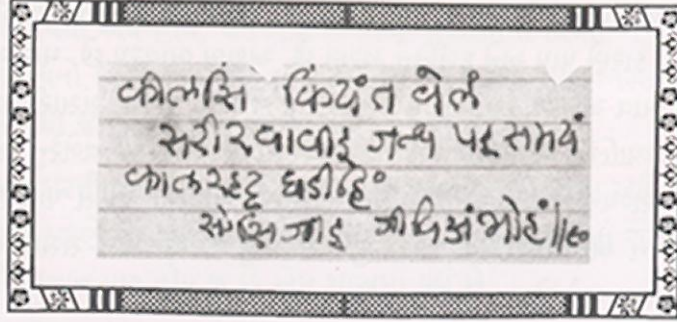 कीलसि कियंत वेलं
सरीरवावीइ जत्थ पइ समयं
कालरहट्ट घडीहिं
सोसिजाइ जीविअंभोहं ॥६०